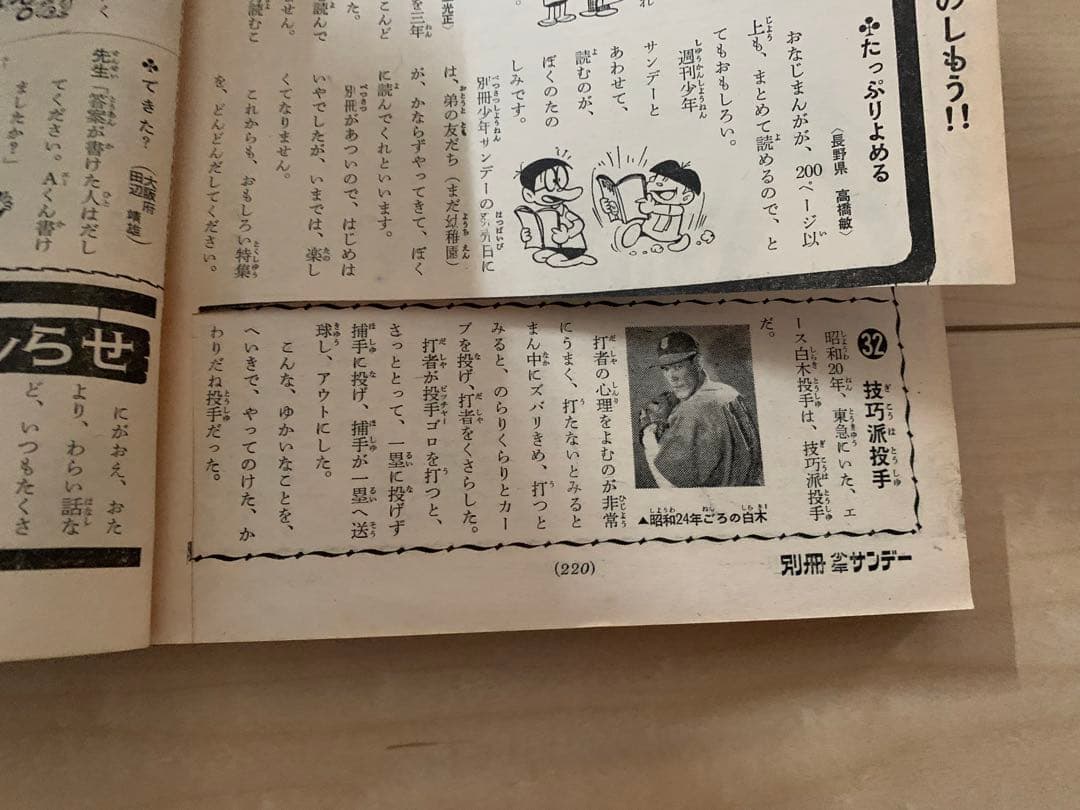 のしもう!!
♣たっぷりよめる
〈長野県　高橋敏〉
おなじまんがが、200ページ以
上も、まとめて読めるので、と
てもおもしろい。
週刊少年
サンデーと
あわせて、
読むのが、
ぼくのたの
しみです。
別冊少年サンデーの発売日に
は、弟の友だち（まだ幼稚園）
が、かならずやってきて、ぼく
に読んでくれといいます。
別冊があついので、はじめは
いやでしたが、いまでは、楽し
くてなりません。
これからも、おもしろい特集
を、どんどんだしてください。
光正〉
を三年
こんど
た。
読んで
せん。
読むこ
㉜ 技巧派投手
昭和20年、東急にいた、エ
ース白木投手は、技巧派投手
だ。
▲昭和24年ごろの白木
打者の心理をよむのが非常
にうまく、打たないとみると
まん中にズバリきめ、打つと
みると、のらりくらりとカー
ブを投げ、打者をくさらした。
打者が投手ゴロを打つと、
さっととって、一塁に投げず
捕手に投げ、捕手が一塁へ送
球し、アウトにした。
こんな、ゆかいなことを、
へいきで、やってのけた、か
わりだね投手だった。
(220)
別冊少年サンデー
♣できた？
〈大阪府
田辺　靖雄〉
先生「答案が書けた人はだし
てください。Aくん書け
ましたか？」
らせ
にがおえ、おた
より、わらい話な
ど、いつもたくさ